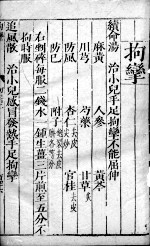 拘攣
續命湯 治小兒手足拘攣不能伸
麻黃 人參 黃芩
川芎 芍藥 甘草
防風 杏仁去皮尖炒 官桂去皮
防己 附子
右剉碎每服二錢水一鍾生薑三片煎至五分不
拘時服
追風散 治小兒感冒發熱手足拘攣